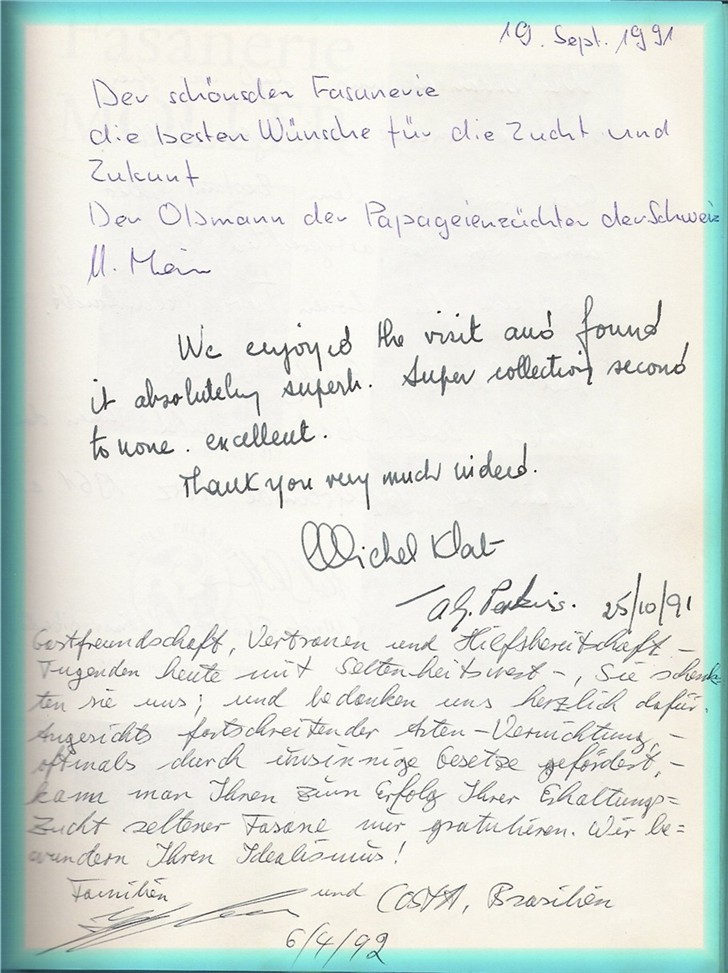 19. Sept. 1991
Der schönsden Fasanerie
die besten Wünsche für die Zucht und
Zukunft
Der Obmann der Papageienzüchter der Schweiz
We enjoyed the visit and found
it absolutely superb. Super collection second
to none. excellent.
Thank you very much indeed.
Michel Klat
A.G. Perkins. 25/10/91
Gastfreundschaft, Vertrauen und Hilfsbereitschaft -
Tugenden heute mit Seltenheitswert -, Sie schenk-
ten sie uns; und bedanken uns herzlich dafür.
Angesichts fortschreitender Arten-Vernichtung, -
oftmals durch unsinnige Gesetze gefördert, -
kann man Ihnen zum Erfolg Ihrer Erhaltungs=
Zucht seltener Fasane nur gratulieren. Wir be=
wundern Ihren Idealismus!
Familien
und COSTA, Brasilien
6/4/92